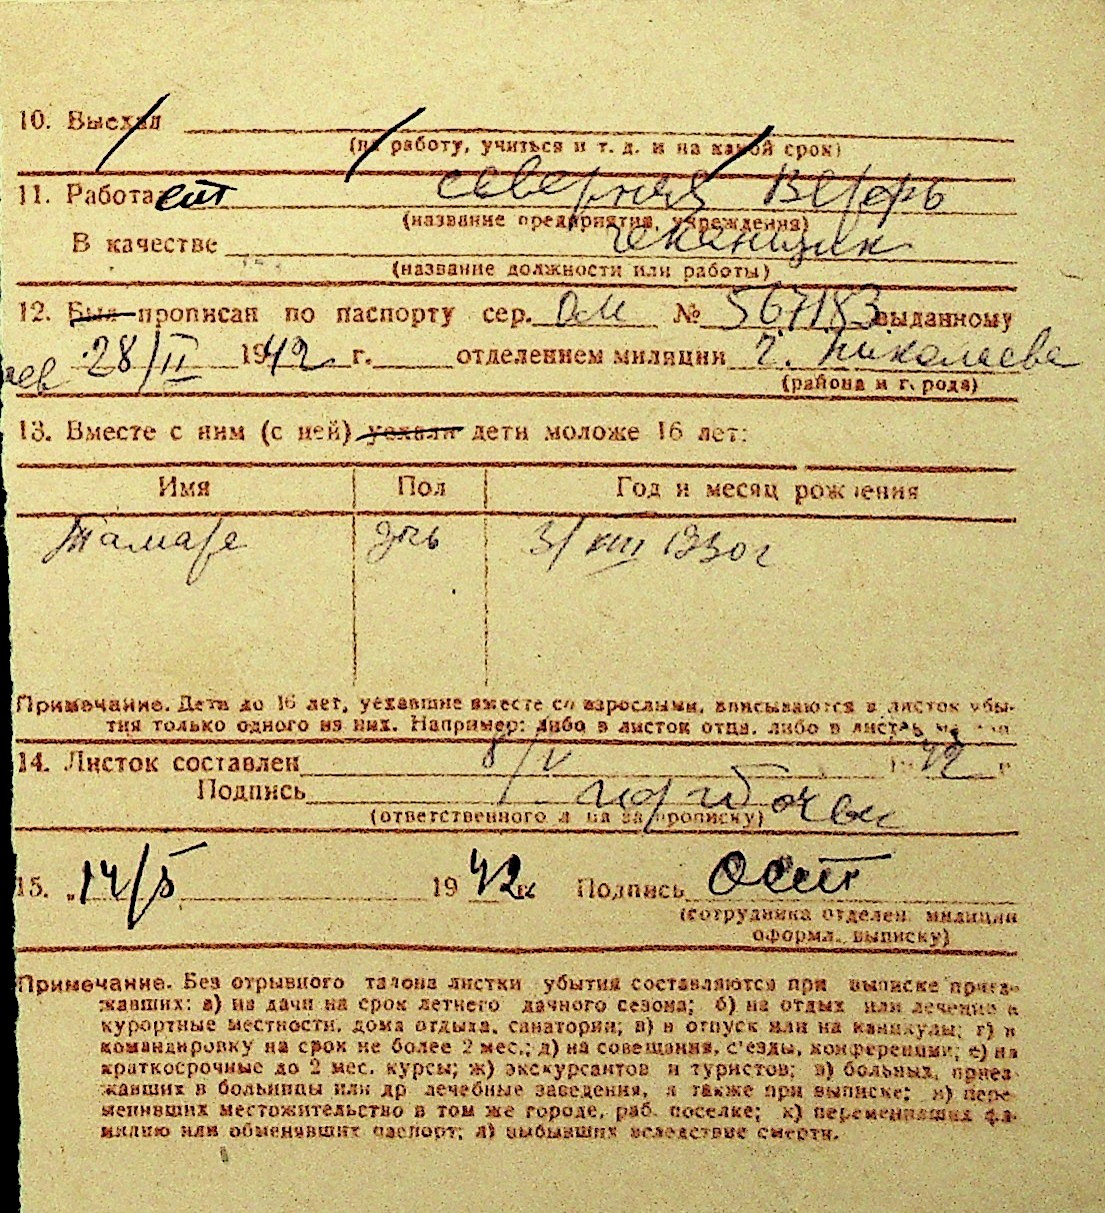 10. Выехал
(на работу, учиться и т. д. и на какой срок)
11. Работает северная верфь
(название предприятия, учреждения)
В качестве чеканщик
(название должности или работы)
12. Был прописан по паспорту сер. ОМ № 567183 выданному
28/II 1942 г. отделением милиции г. Николаева
(района и города)
13. Вместе с ним (с ней) уехали дети моложе 16 лет:
Имя Пол Год и месяц рождения
Тамара дочь 31/VIII 1930 г
Примечание. Дети до 16 лет, уехавшие вместе со взрослыми, вписываются в листок убы-
тия только одного из них. Например: либо в листок отца, либо в листок
14. Листок составлен 8/V 1942 г
Подпись
(ответственного л на за прописку)
15. „14/5 1942 г. Подпись
(сотрудника отделен. милиции
оформл. выписку)
Примечание. Без отрывного талона листки убытия составляются при выписке приез-
жавших: а) на дачи на срок летнего дачного сезона; б) на отдых или лечение в
курортные местности, дома отдыха, санатории; в) в отпуск или на каникулы; г) в
командировку на срок не более 2 мес.; д) на совещания, с'езды, конференции; е) на
краткосрочные до 2 мес. курсы; ж) экскурсантов и туристов; з) больных, приез-
жавших в больницы или др лечебные заведения, а также при выписке; и) пере-
менивших местожительство в том же городе, раб. поселке; к) переменивших фа-
милию или обменявших паспорт; л) выбывших вследствие смерти.